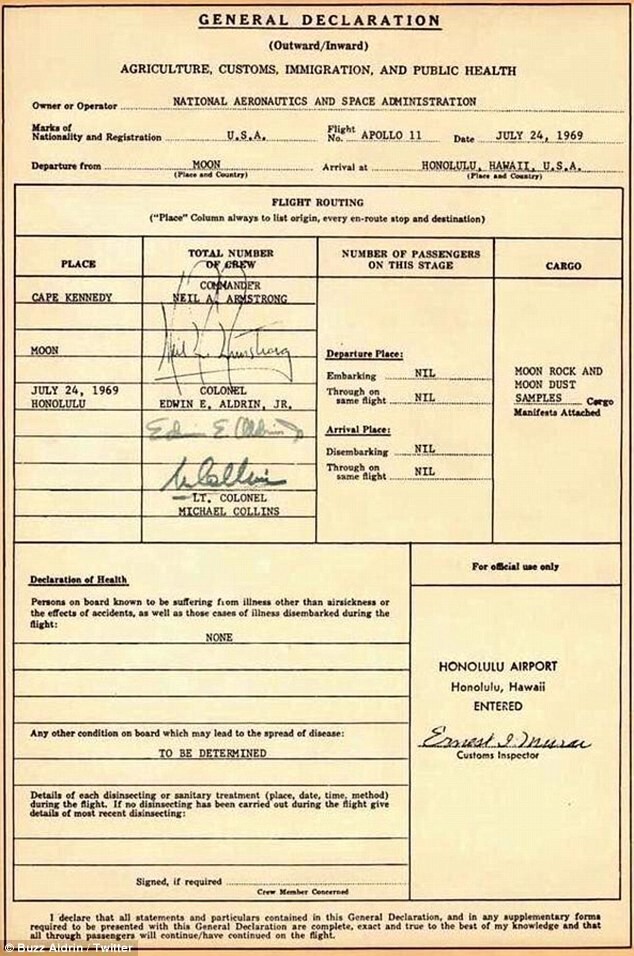 GENERAL DECLARATION
(Outward/Inward)
AGRICULTURE, CUSTOMS, IMMIGRATION, AND PUBLIC HEALTH
Owner or Operator NATIONAL AERONAUTICS AND SPACE ADMINISTRATION
Marks of
Nationality and Registration U.S.A. Flight No. APOLLO 11 Date JULY 24, 1969
Departure from MOON Arrival at HONOLULU, HAWAII, U.S.A.
(Place and Country) (Place and Country)
FLIGHT ROUTING
("Place" Column always to list origin, every en-route stop and destination)
PLACE
TOTAL NUMBER
OF CREW
NUMBER OF PASSENGERS
ON THIS STAGE
CARGO
CAPE KENNEDY
MOON
JULY 24, 1969
HONOLULU
COMMANDER
NEIL A. ARMSTRONG
Neil A. Armstrong
COLONEL
EDWIN E. ALDRIN, JR.
Edwin E. Aldrin Jr
M Collins
LT. COLONEL
MICHAEL COLLINS
Departure Place:
Embarking NIL
Through on
same flight NIL
Arrival Place:
Disembarking NIL
Through on
same flight NIL
MOON ROCK AND
MOON DUST
SAMPLES Cargo
Manifests Attached
Declaration of Health
Persons on board known to be suffering from illness other than airsickness or
the effects of accidents, as well as those cases of illness disembarked during the
flight:
NONE
Any other condition on board which may lead to the spread of disease:
TO BE DETERMINED
Details of each disinsecting or sanitary treatment (place, date, time, method)
during the flight. If no disinsecting has been carried out during the flight give
details of most recent disinsecting:
Signed, if required
Crew Member Concerned
For official use only
HONOLULU AIRPORT
Honolulu, Hawaii
ENTERED
Ernest I. Murai
Customs Inspector
I declare that all statements and particulars contained in this General Declaration, and in any supplementary forms
required to be presented with this General Declaration are complete, exact and true to the best of my knowledge and that
all through passengers will continue/have continued on the flight.
© Buzz Aldrin / Twitter